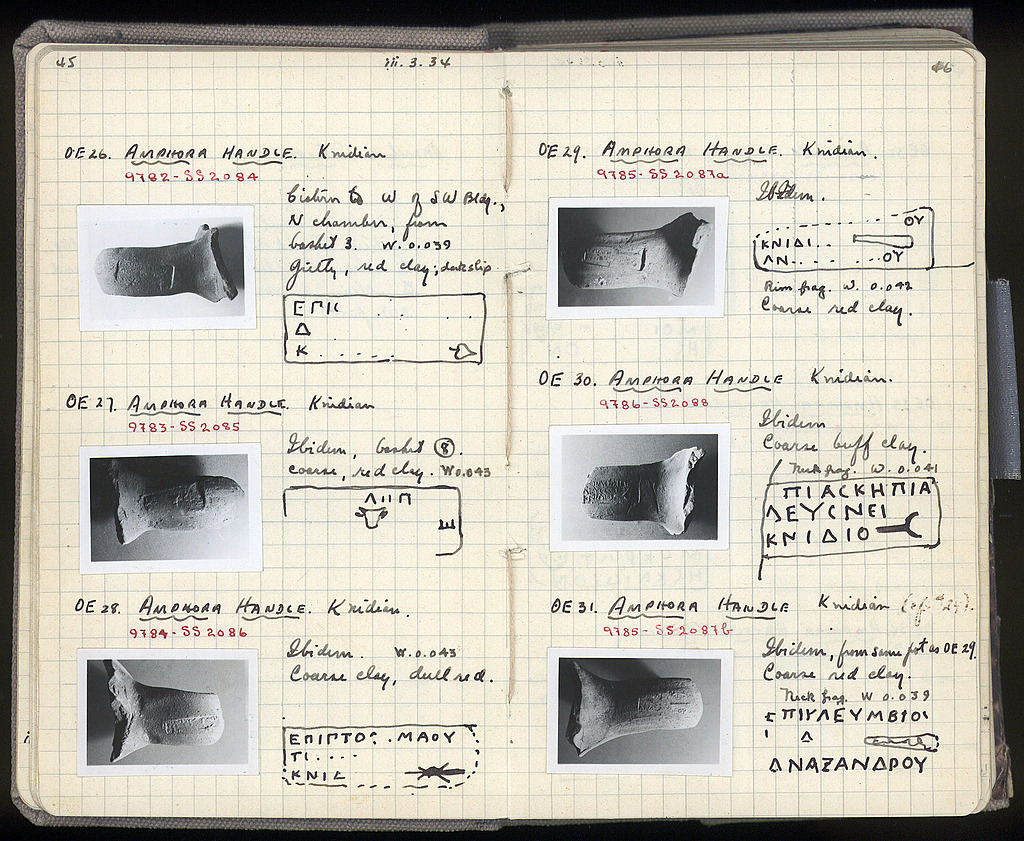 45
iii.3.34
OE 26. AMPHORA HANDLE. Knidian
9782-SS 2084
Cistern to W of SW Bldg.,
N chamber, from
basket 3. W. 0.039
Gritty, red clay; dark slip
ΕΠΙ
Δ
Κ . . . . .
OE 27. AMPHORA HANDLE. Knidian
9783-SS 2085
Ibidem, basket 8.
coarse, red clay. W 0.043
Ε
OE 28. AMPHORA HANDLE. Knidian.
9784-SS 2086
Ibidem. W. 0.043
Coarse clay, dull red.
ΕΠΙΠΤΟ . ΜΑΟΥ
ΤΙ . . . .
ΚΝΙΔ
46
OE 29. AMPHORA HANDLE. Knidian.
9785-SS 2087a
Ibidem.
. . . . . . . ΟΥ
ΚΝΙΔΙ . .
ΑΝ . . . . . . . . ΟΥ
Rim frag. W. 0.042
Coarse red clay.
OE 30. AMPHORA HANDLE Knidian.
9786-SS 2088
Ibidem
Coarse buff clay.
Neck frag. W. 0.041
ΠΙΑΣΚΗΠΙΑ
ΛΕΥΣΝΕΙ
ΚΝΙΔΙΟ
OE 31. AMPHORA HANDLE Knidian (cf. #29).
9785-SS 2087b
Ibidem, from same pot as OE 29.
Coarse red clay.
Neck frag. W 0.039
ΕΠΙΥΛΕΥΜΒΙΟΙ
Ι Δ
ΑΝΑΞΑΝΔΡΟΥ